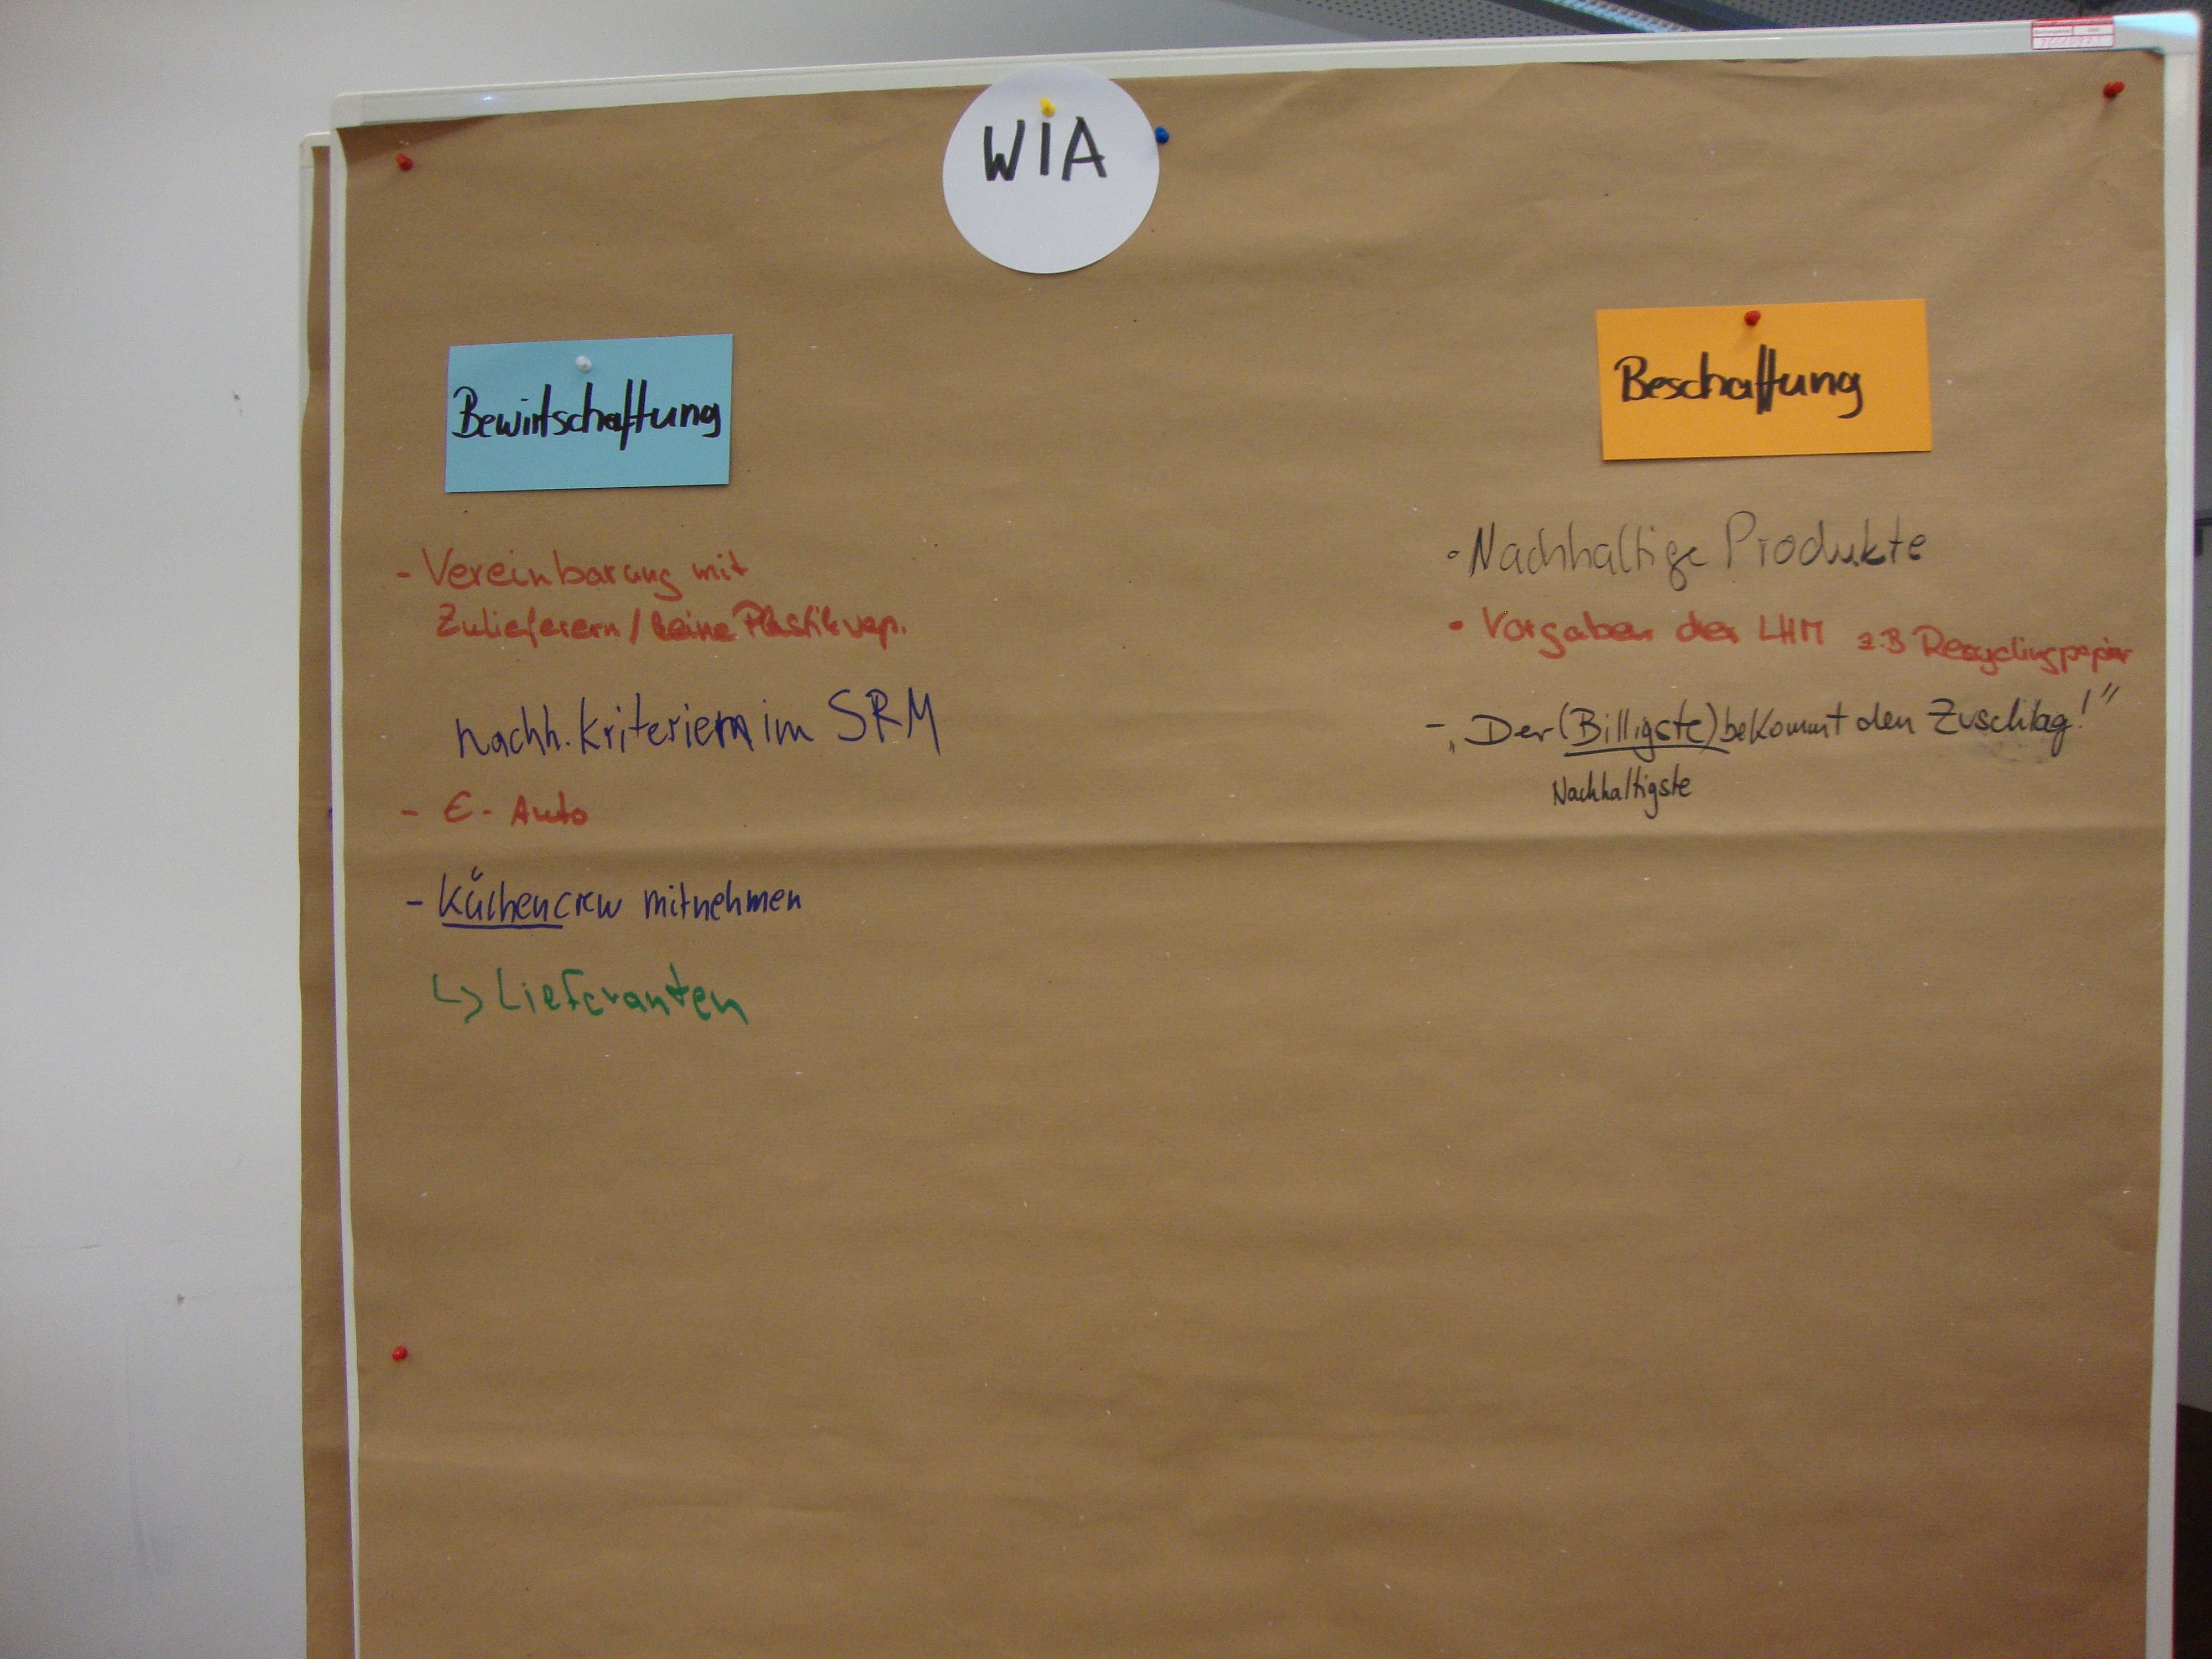 WIA
Bewirtschaftung
- Vereinbarung mit
Zulieferern / keine Plastikvep.
nachh. Kriterien im SRM
- E-Auto
- Küchencrew mitnehmen
↳ Lieferanten
Beschaffung
• Nachhaltige Produkte
• Vorgaben der LHM z.B Recyclingpapier
- „Der (Billigste) bekommt den Zuschlag!"
Nachhaltigste